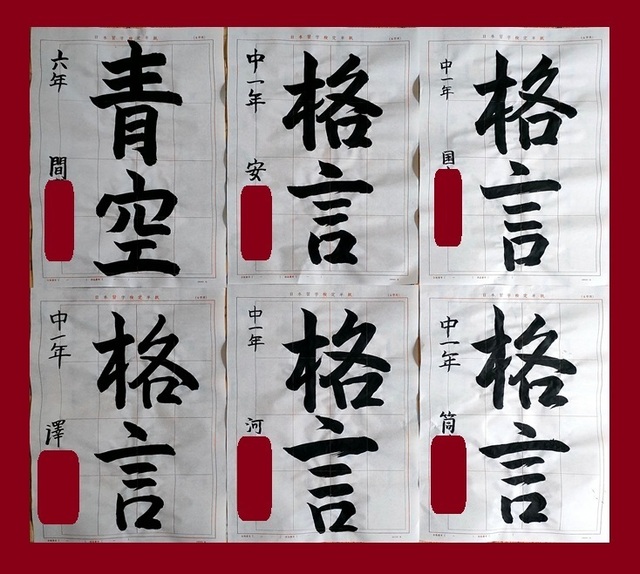 青空
六年
間
格言
中一年
安
格言
中一年
国
格言
中一年
澤
格言
中一年
河
格言
中一年
筒